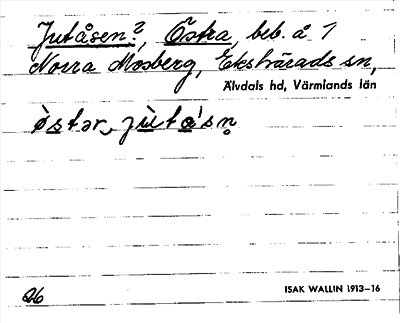 Jutåsen?, Östra, beb. å 1
Norra Mosberg, Ekshärads sn,
Älvdals hd, Värmlands län
òstər, jùtá'sn̥
26
ISAK WALLIN 1913–16